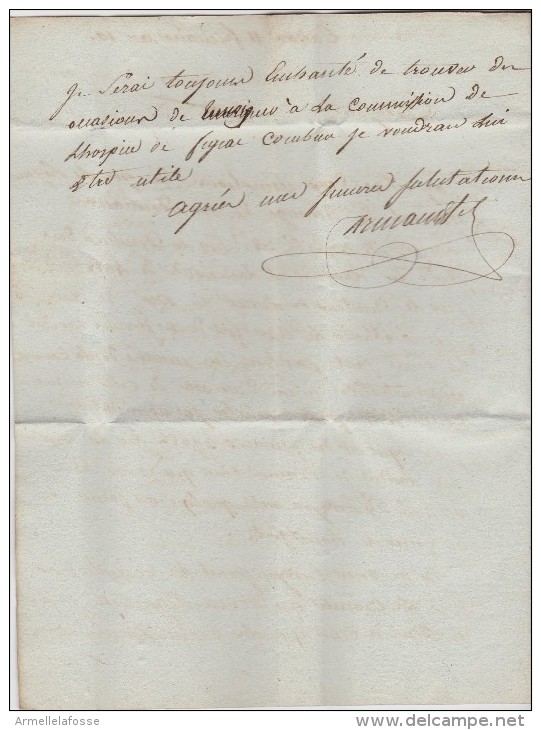 Je serai toujours Enchanté de trouver des
occasions de temoigner à La Commission de
L'hospice de figeac Combien je voudrais Lui
être utile
agréer mes sinceres salutations
Armellelafosse
www.delcampe.net